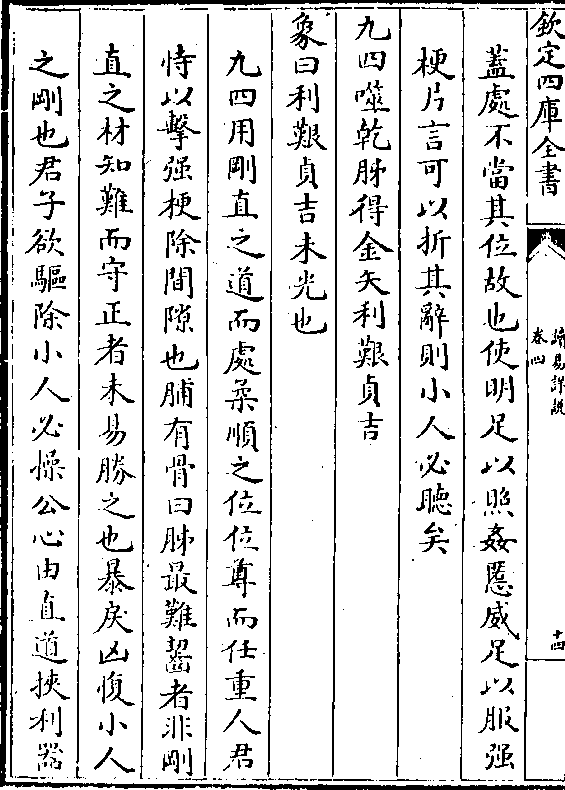 欽定四庫全書
讀易詳說
卷四
十四
蓋處不當其位故也使明足以照姦慝威足以服强
梗片言可以折其辭則小人必聽矣
九四噬乾胏得金矢利艱貞吉
象曰利艱貞吉未光也
九四用剛直之道而處柔順之位位尊而任重人君
恃以擊强梗除間隙也脯有骨曰胏最難齧者非剛
直之材知難而守正者未易勝之也暴戾凶愎小人
之剛也君子欲驅除小人必操公心由直道挾利器